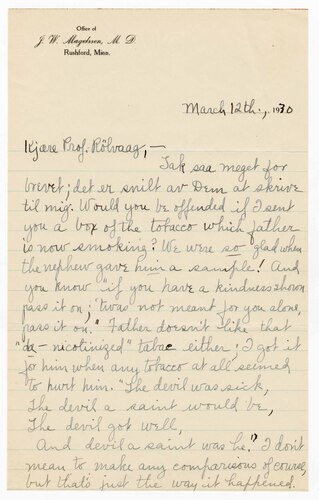 Office of
J. W. Magelssen, M. D.
Rushford, Minn.
March 12th., 1930
Kjære Prof. Rölvaag,—
Tak saa meget for
brevet; det er snilt av Dem at skrive
til mig. Would you be offended if I sent
you a box of the tobacco which father
is now smoking? We were so glad when
the nephew gave him a sample! And
you know "if you have a kindness shown
pass it on; 'twas not meant for you alone,
pass it on." Father doesn't like that
"de-nicotinized" tabac either; I got it
for him when any tobacco at all seemed
to hurt him. "The devil was sick,
The devil a saint would be,
The devil got well,
And devil a saint was he." I don't
mean to make any comparisons of course,
but that's just the way it happened.